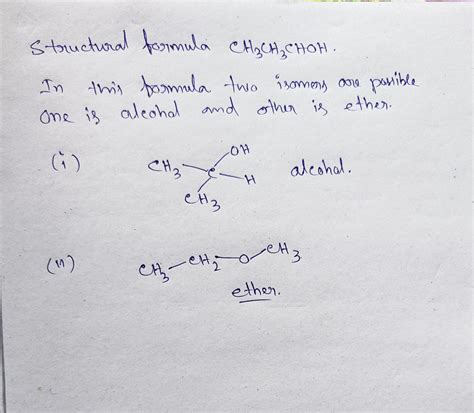 Structural formula CH3CH3CHOH.
In this formula two isomers are possible
one is alcohal and other is ether.
(i)
OH
CH3 C H
CH3
alcohal.
(ii)
CH3-CH2-O-CH3
ether.